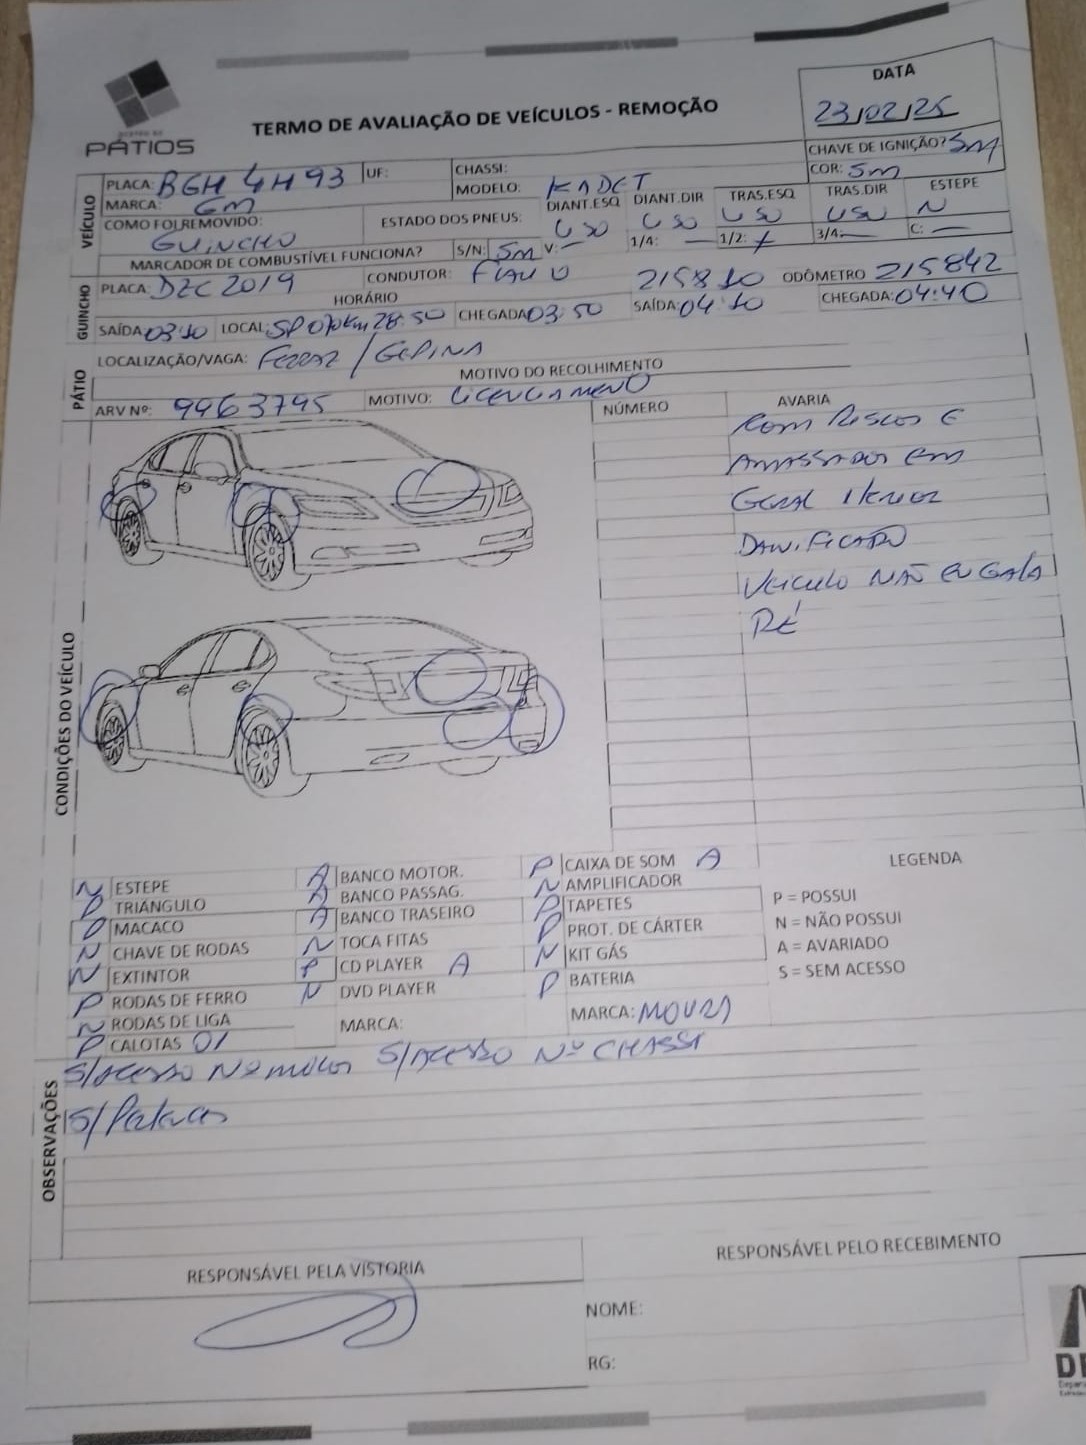 DATA
23/02/25
PÁTIOS
TERMO DE AVALIAÇÃO DE VEÍCULOS - REMOÇÃO
CHAVE DE IGNIÇÃO? Sm
VEÍCULO
PLACA: BGH 4H93 UF: CHASSI: COR: Sm
MARCA: GM MODELO: KADET
COMO FOI REMOVIDO: GUINCHO
ESTADO DOS PNEUS: DIANT.ESQ USO DIANT.DIR USO TRAS.ESQ USO TRAS.DIR USO ESTEPE N
MARCADOR DE COMBUSTÍVEL FUNCIONA? S/N: Sm V: — 1/4: — 1/2: 3/4: — C: —
GUINCHO
PLACA: DZC 2019 CONDUTOR: FLAVIO 215810 ODÔMETRO 215842
HORÁRIO
SAÍDA: 03:10 LOCAL: SP 070 Km 28.50 CHEGADA: 03:50 SAÍDA: 04:10 CHEGADA: 04:40
PÁTIO
LOCALIZAÇÃO/VAGA: FERRAZ /
MOTIVO DO RECOLHIMENTO
ARV Nº: 9963795 MOTIVO: LICENCIAMENTO
CONDIÇÕES DO VEÍCULO
NÚMERO AVARIA
COM RISCOS E
AMASSADOS EM
GERAL INTERIOR
DANIFICADO
VEICULO NÃO ENGATA
RÉ
N ESTEPE
P TRIÂNGULO
P MACACO
N CHAVE DE RODAS
N EXTINTOR
P RODAS DE FERRO
N RODAS DE LIGA
P CALOTAS 01
A BANCO MOTOR.
A BANCO PASSAG.
A BANCO TRASEIRO
N TOCA FITAS
P CD PLAYER A
N DVD PLAYER
MARCA:
P CAIXA DE SOM A
N AMPLIFICADOR
P TAPETES
P PROT. DE CÁRTER
N KIT GÁS
P BATERIA
MARCA: MOURA
LEGENDA
P = POSSUI
N = NÃO POSSUI
A = AVARIADO
S = SEM ACESSO
OBSERVAÇÕES
S/ACESSO Nº MOTOR S/ACESSO Nº CHASSI
RESPONSÁVEL PELA VISTORIA
RESPONSÁVEL PELO RECEBIMENTO
NOME:
RG: